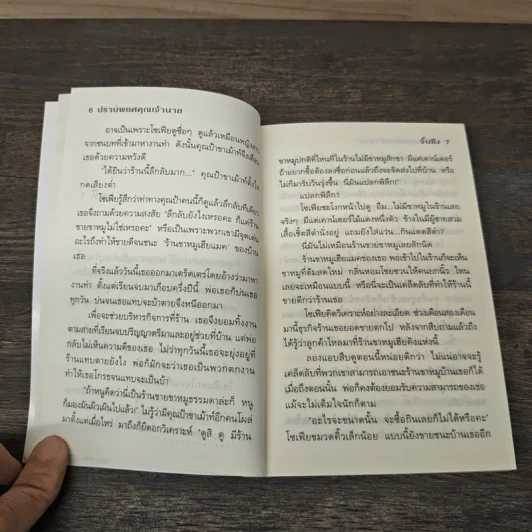 6 ปราบพยศคุณเจ้านาย
อาจเป็นเพราะโซเฟียดูซื่อๆ ดูแล้วเหมือนหญิงสาว
จากชนบทที่เข้ามาหางานทำ ดังนั้นคุณป้าขาเม้าท์จึงเตือน
เธอด้วยความหวังดี
'ได้ยินว่าร้านนี้ลึกลับมาก...' คุณป้าขาเม้าท์ตั้งใจ
กดเสียงต่ำ
โซเฟียรู้สึกว่าท่าทางคุณป้าคนนี้ก็ดูลึกลับทีเดียว
เธอจึงถามด้วยความสงสัย 'ลึกลับยังไงเหรอคะ ก็แค่ร้าน
ขายขาหมูไม่ใช่เหรอคะ' หรือเป็นเพราะพวกเขามีจุดเด่น
อะไรถึงทำให้ขายดีจนชนะ 'ร้านขาหมูเฮียแมค' ของบ้าน
เธอ
ที่จริงแล้ววันนี้เธอออกมาเตร็ดเตร่โดยอ้างว่ามาหา
งานทำ ตั้งแต่เรียนจบมาเกือบครึ่งปีนี้ พ่อเธอก็บ่นเธอ
ทุกวัน บ่นจนเธอแทบจะบ้าตายจึงหนีออกมา
เพื่อจะช่วยบริหารกิจการที่ร้าน เธอจึงยอมทิ้งงาน
ตามสายที่เรียนจบปริญญาตรีมาและอยู่ช่วยที่บ้าน แต่พ่อ
กลับไม่เห็นความดีของเธอ ไม่ว่าทุกวันนี้เธอจะยุ่งอยู่ที่
ร้านแทบตายยังไง พ่อก็มักจะว่าเธอเป็นพวกตกงาน
ทำให้เธอโกรธจนแทบจะเป็นบ้า
"ถ้าหนูคิดว่านี่เป็นร้านขายขาหมูธรรมดาล่ะก็ หนู
ก็มองมันผิวเผินไปแล้ว" ไม่รู้ว่ามีคุณป้าขาเม้าท์อีกคนโผล่
มาตั้งแต่เมื่อไหร่ มาถึงก็ยืดอกวิเคราะห์ 'ดูสิ ดู มีร้าน
จันชิง 7
ขาหมูปกติที่ไหนที่ในร้านไม่มีขาหมูสักขา มีแต่เคาน์เตอร์
ถ้าอยากซื้อต้องลงชื่อก่อนแล้วถึงจะจัดส่งไปที่บ้าน หรือ
ไม่ก็มารับวันรุ่งขึ้น นี่มันแปลกพิลึก!'
แปลกพิลึก?
โซเฟียชะโงกหน้าไปดู อืม...ไม่มีขาหมูในร้านเลย
จริงๆ มีแต่เคาน์เตอร์ไม้แดงหนึ่งตัว ข้างในมีผู้ชายสวม
เสื้อเชิ้ตสีดำนั่งอยู่ แถมยังใส่แว่น...กันแดดสีดำ?
นี่มันไม่เหมือนร้านขายขาหมูเลยสักนิด
ร้านขาหมูเฮียแมคของเธอ พอเข้าไปในร้านก็จะเห็น
ขาหมูที่ต้มสดใหม่ กลิ่นหอมโชยชวนให้คนยกนิ้ว ไหน
เลยจะเหมือนแบบนี้ หรือนี่จะเป็นเคล็ดลับที่ทำให้ร้านนี้
ขายดีกว่าร้านเธอ
โซเฟียคิดวิเคราะห์อย่างละเอียด ช่วงเดือนสองเดือน
มานี้ธุรกิจร้านเธอยอดขายตกไป หลังจากสืบถามแล้วถึง
ได้รู้ว่าลูกค้าไหลมาที่ร้านขาหมูเฮียคิงแห่งนี้
ลองแอบสืบดูตอนนี้หน่อยดีกว่า ไม่แน่อาจจะรู้
เคล็ดลับที่พวกเขาสามารถเอาชนะร้านขาหมูบ้านเธอก็ได้
เมื่อถึงตอนนั้น พ่อก็คงต้องยอมรับความสามารถของเธอ
แม้จะไม่เต็มใจนักก็ตาม
'อะไรจะขนาดนั้น จะซื้อกินเลยก็ไม่ได้หรือคะ'
โซเฟียขมวดคิ้วเล็กน้อย แบบนี้ยังขายชนะบ้านเธออีก